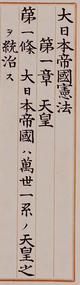 大日本帝國憲法
第一章 天皇
第一條 大日本帝國ハ萬世一系ノ天皇之
ヲ統治ス